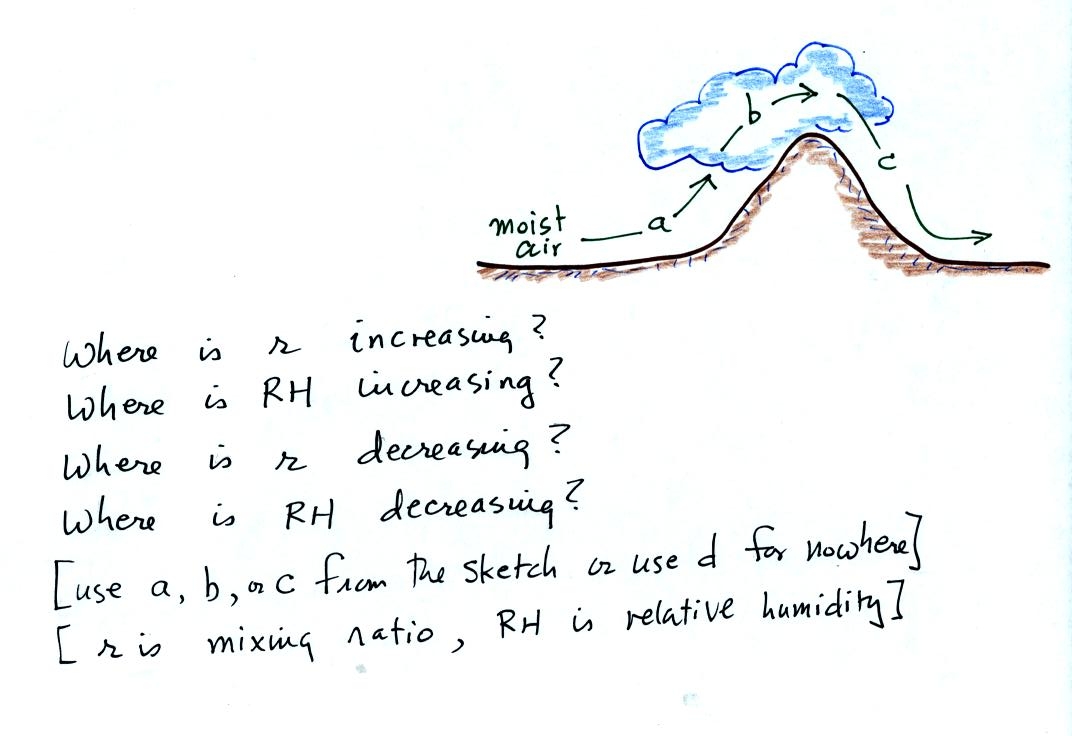 b
c
a
moist
air
Where is r increasing?
Where is RH increasing?
Where is r decreasing?
Where is RH decreasing?
[use a, b, or c from the sketch or use d for nowhere]
[r is mixing ratio, RH is relative humidity]